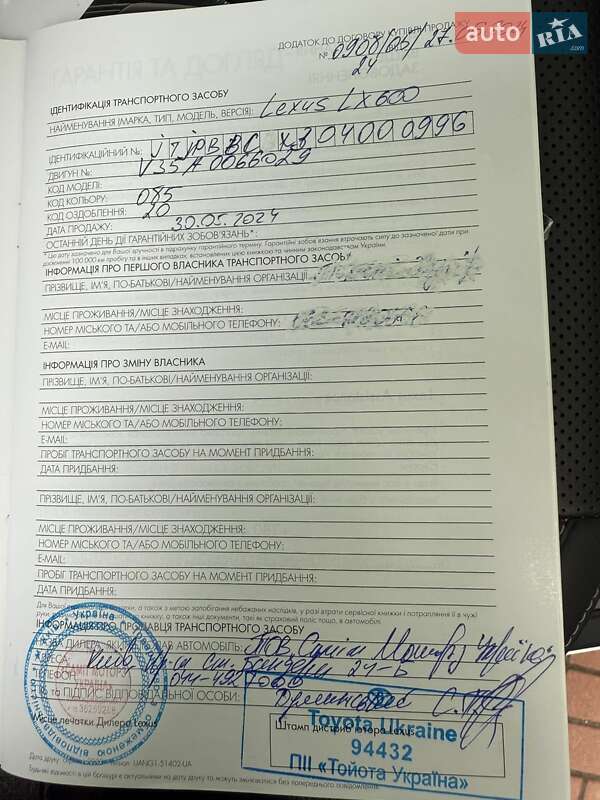 ДОДАТОК ДО ДОГОВОРУ КУПІВЛІ-ПРОДАЖУ
№ 0908/05/27.
24
auto RIA.com
ІДЕНТИФІКАЦІЯ ТРАНСПОРТНОГО ЗАСОБУ
НАЙМЕНУВАННЯ (МАРКА, ТИП, МОДЕЛЬ, ВЕРСІЯ): Lexus LX600
ІДЕНТИФІКАЦІЙНИЙ №: JTJPBBC X 04000996
ДВИГУН №: V35A0066029
КОД МОДЕЛІ:
КОД КОЛЬОРУ: 085
КОД ОЗДОБЛЕННЯ: 20
ДАТА ПРОДАЖУ: 30.05.2024
ОСТАННІЙ ДЕНЬ ДІЇ ГАРАНТІЙНИХ ЗОБОВ'ЯЗАНЬ*:
* Цю дату зазначено для Вашої зручності в підрахунку гарантійного терміну. Гарантійні зобов'язання втрачають силу до зазначеної дати при
досягненні 100 000 км пробігу та в інших випадках, встановлених цією книжкою та чинним законодавством України.
ІНФОРМАЦІЯ ПРО ПЕРШОГО ВЛАСНИКА ТРАНСПОРТНОГО ЗАСОБУ
ПРІЗВИЩЕ, ІМ'Я, ПО-БАТЬКОВІ/НАЙМЕНУВАННЯ ОРГАНІЗАЦІЇ:
МІСЦЕ ПРОЖИВАННЯ/МІСЦЕ ЗНАХОДЖЕННЯ:
НОМЕР МІСЬКОГО ТА/АБО МОБІЛЬНОГО ТЕЛЕФОНУ:
E-MAIL:
ІНФОРМАЦІЯ ПРО ЗМІНУ ВЛАСНИКА
ПРІЗВИЩЕ, ІМ'Я, ПО-БАТЬКОВІ/НАЙМЕНУВАННЯ ОРГАНІЗАЦІЇ:
МІСЦЕ ПРОЖИВАННЯ/МІСЦЕ ЗНАХОДЖЕННЯ:
НОМЕР МІСЬКОГО ТА/АБО МОБІЛЬНОГО ТЕЛЕФОНУ:
E-MAIL:
ПРОБІГ ТРАНСПОРТНОГО ЗАСОБУ НА МОМЕНТ ПРИДБАННЯ:
ДАТА ПРИДБАННЯ:
ПРІЗВИЩЕ, ІМ'Я, ПО-БАТЬКОВІ/НАЙМЕНУВАННЯ ОРГАНІЗАЦІЇ:
МІСЦЕ ПРОЖИВАННЯ/МІСЦЕ ЗНАХОДЖЕННЯ:
НОМЕР МІСЬКОГО ТА/АБО МОБІЛЬНОГО ТЕЛЕФОНУ:
E-MAIL:
ПРОБІГ ТРАНСПОРТНОГО ЗАСОБУ НА МОМЕНТ ПРИДБАННЯ:
ДАТА ПРИДБАННЯ:
Для Вашої а також з метою запобігання небажаних наслідків, у разі втрати сервісної книжки і потрапляння її в чужі
руки, книжку, а також інші документи, такі як страховий поліс тощо, в автомобілі.
ІНФОРМАЦІЯ ПРО ПРОДАВЦЯ ТРАНСПОРТНОГО ЗАСОБУ
НАЗВА ДИЛЕРА, ЯКИЙ АВ АВТОМОБІЛЬ: ТОВ
АДРЕСА: Бандери 24-Б
ТЕЛЕФОН 044-49
ПІБ ТА ПІДПИС ВІДПОВІДАЛЬНОЇ ОСОБИ:
Місце печатки Дилера Lexus
Штамп дистриб'ютора Lexus
Toyota Ukraine
94432
ПІІ «Тойота Україна»
Україна
Дата друку: UANG1-51402-UA
Будь-які відомості в цій брошурі є актуальними на дату друку та можуть змінюватися без попереднього повідомлення.